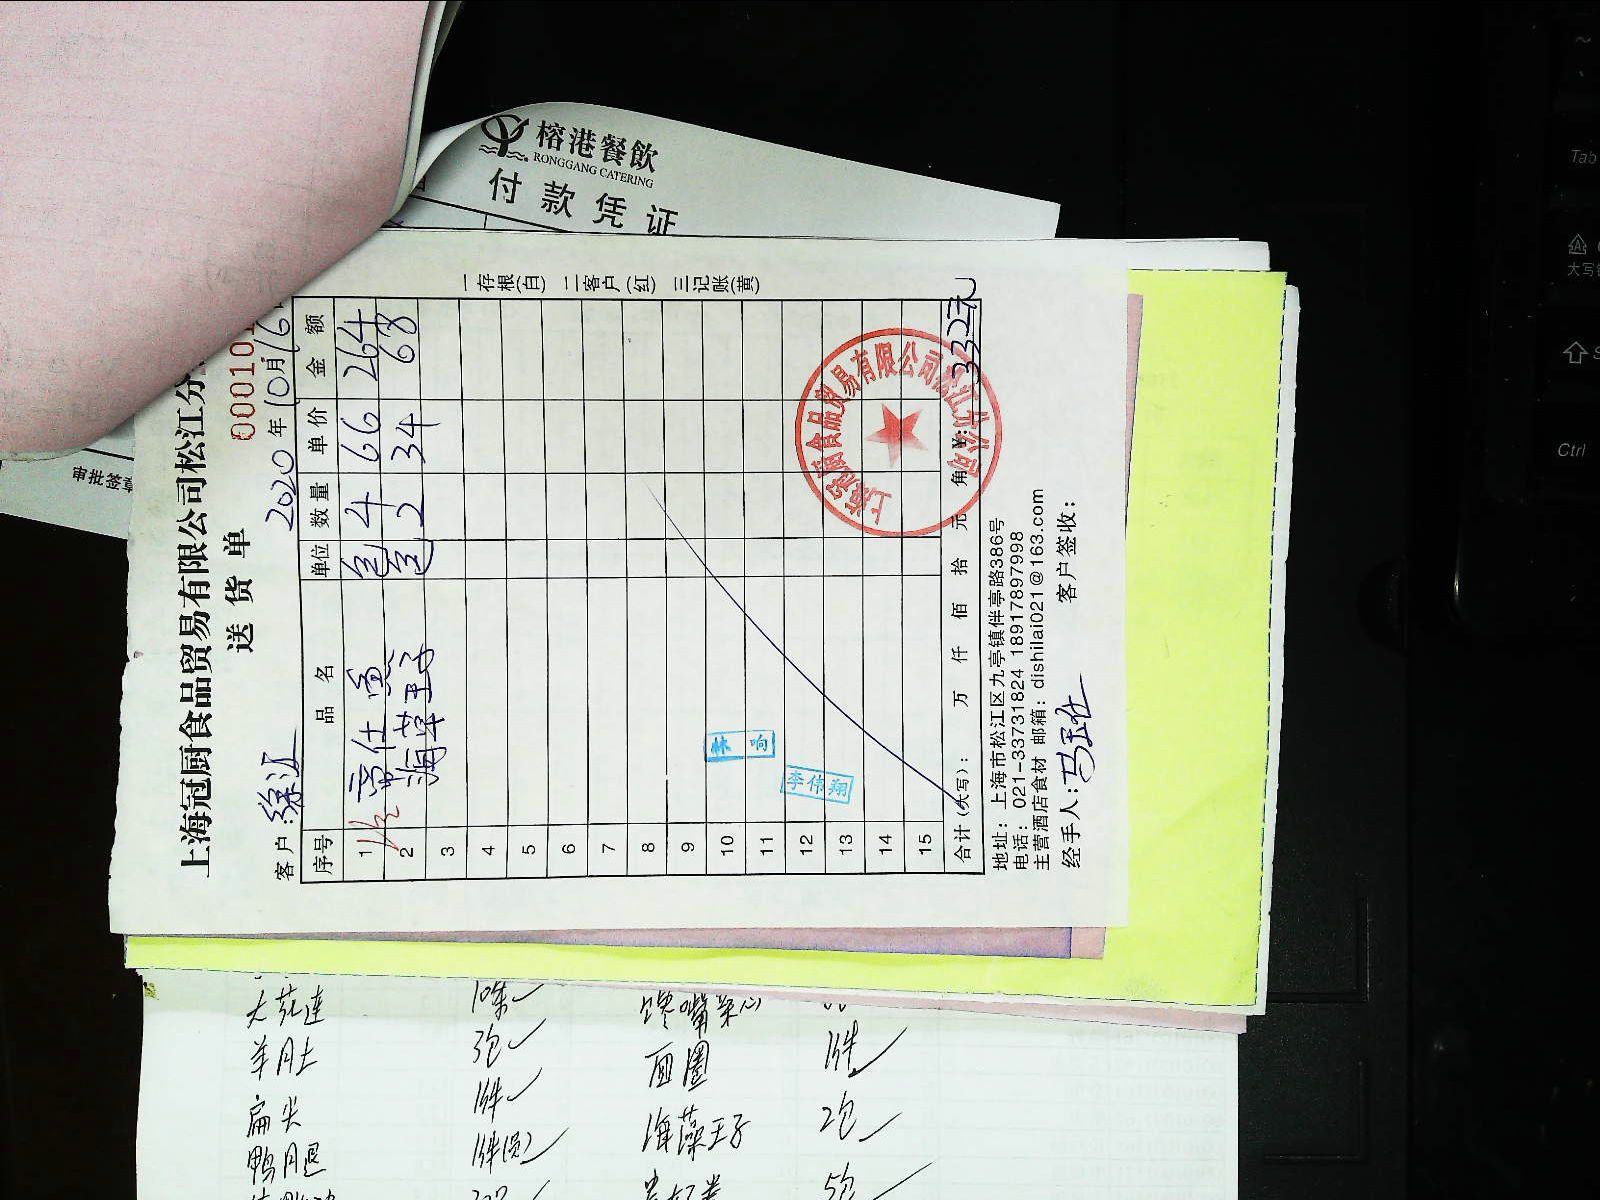 榕港餐飲
RONGGANG CATERING
付款凭证
审批签章
上海冠厨食品贸易有限公司松江分
送货单
00010
客户:徐汇
2020年10月16
序号 品名 单位 数量 单价 金额
1 帝仕鱼 包 4 66 264
2 海草王子 包 2 34 68
3
4
5
6
7
8
9
10
11
12
13
14
15
林响
李伟翔
上海冠厨食品贸易有限公司松江分公司
合计(大写): 万 仟 佰 拾 元 角 ¥: 332元
地址:上海市松江区九亭镇伴亭路386号
电话:021-33731824 18917897998
主营酒店食材 邮箱:dishilai021@163.com
经手人: 客户签收:
一存根(白) 二客户(红) 三记账(黄)
大花连 10条 馋嘴菜心
羊月土 3包 面圈 1件
扁尖 1件 海藻王子 2包
鸭月退 1件 5包
Tab
大写
Ctrl